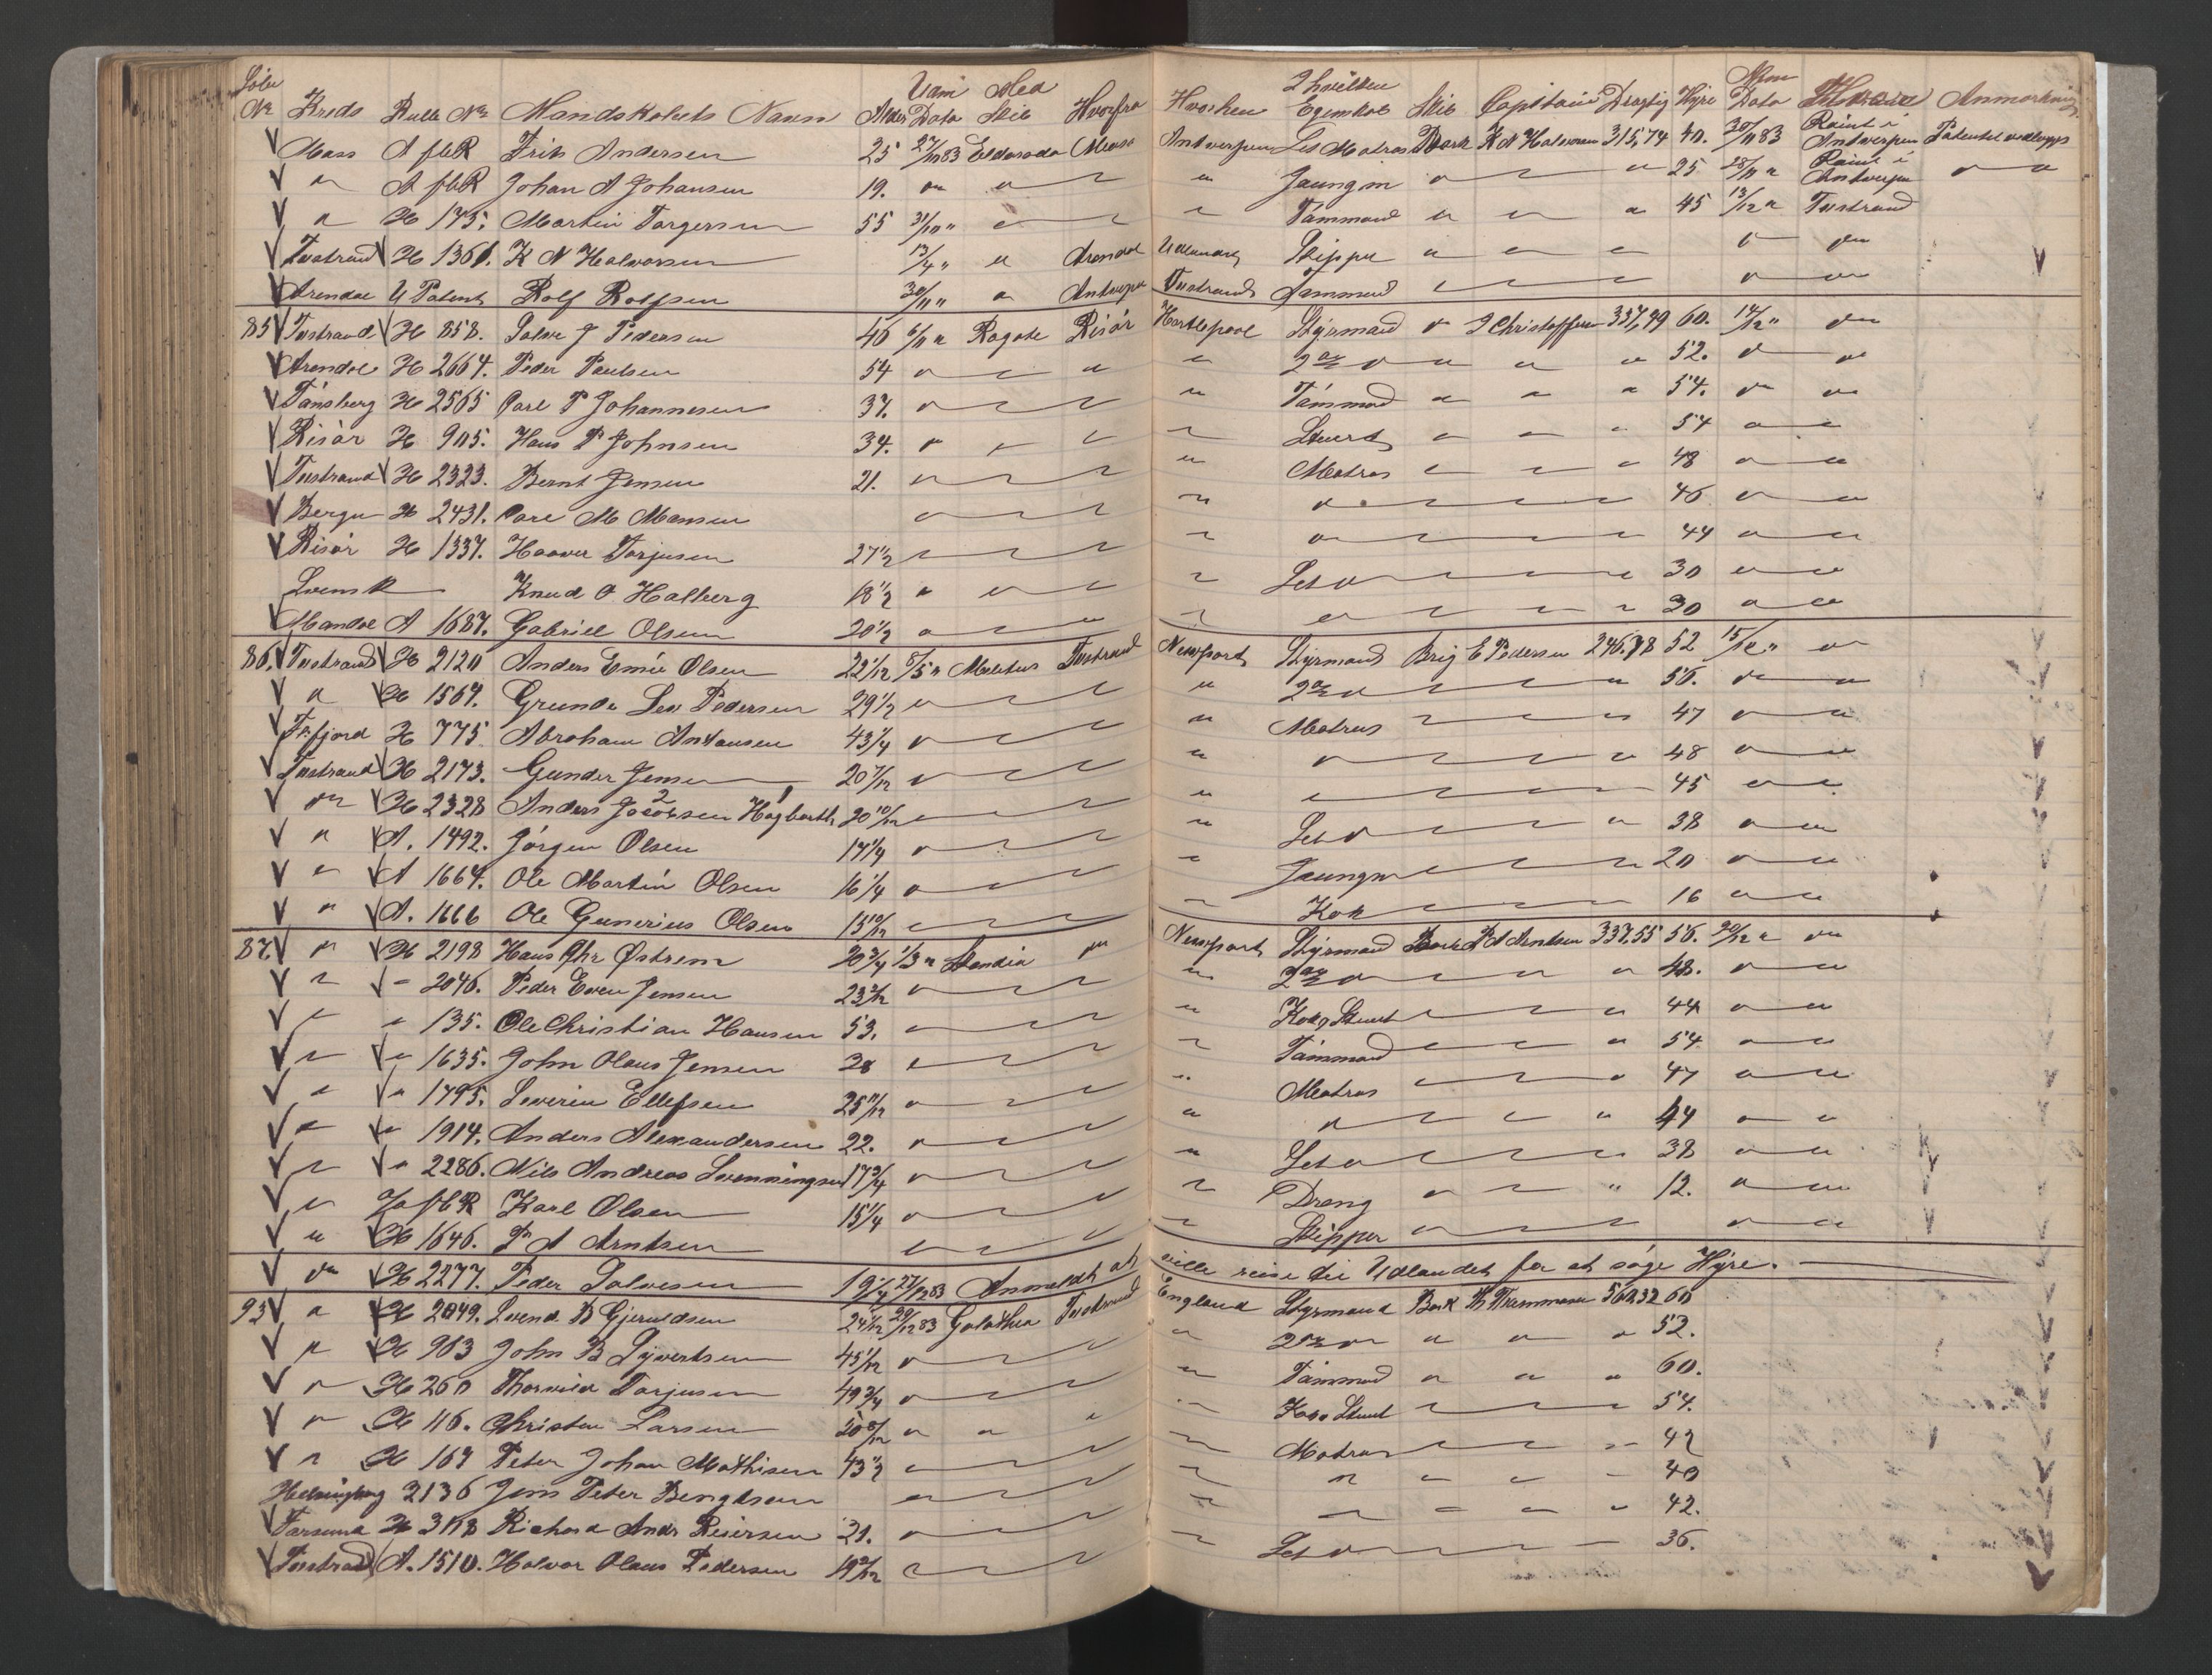 Löbe № Kreds Rulle № Mandskabets Navn Alder Data Med Skib Hvorfra Hvorhen I hvilken Egenskab Skib Capitain Drægtig Hyre Data Anmærkning
Moss A fbR Andersen 25 27/11 83 Eldorado Antwerpen Let Matros Bark K N Halvorsen 315,74 40. 30/11 83 Rømt i Antwerpen
" A fbR Johan A Johansen 19. " " " Jungm " " 25 28/11 " Rømt i Antwerpen " "
" H 175. Martin Torgersen 55 31/10 " " " Tømmermd " " " 45 13/12 " Tvestrand
Tvestrand H 1361. K N Halvorsen 13/4 " " Arendal Udlandet Skipper " " " " "
Arendal U Patent Rolf Rolfsen 30/11 " " Antwerpen Tvestrand Tømmermd " " " "
85 Tvestrand H 858. Salve J Pedersen 40 6/11 " Rogate Risör Hartlepool Styrmand " J Christoffersen 337,79 60. 14/12 " "
Arendal H 2664. Peder Paulsen 54 " " " " 2den " " " " 52. " "
Tönsberg H 2565 Carl P Johannesen 37. " " " " Tømmermd " " " 54. " "
Risör H 905. Hans P Johnsen 34. " " " " Stuert " " " 54 " "
Tvestrand H 2323. Bernt Jensen 21. " " " " Matros " " " 48 " "
Bergen H 2431. Carl M Monsen " " " " " " " 46 " "
Risör H 1337. Haaver Torjusen 27 1/2 " " " " " " " 44 " "
Svensk Knud O Halberg 18 1/2 " " " " Let " " " " 30 " "
Mandal A 1687. Gabriel Olsen 20 1/2 " " " " " " " " 30 " "
86. Tvestrand H 2120 Anders Emil Olsen 22 1/12 8/5 " Tvestrand Newport Styrmand Brig E Pedersen 246.78 52 15/12 " "
" H 1567. Grunde Pedersen 29 1/2 " " " " 2den " " " 56. " "
Fr.fjord H 775 Abraham Antonsen 43 1/4 " " " " Matros " " " 47 " "
Tvestrand H 2173. Gunder Jensen 20 7/12 " " " " " " " " 48 " "
" H 2328 Anders Jacobsen Hagbarth 20 10/12 " " " " " " " 45 " "
" A. 1492. Jörgen Olsen 17 1/4 " " " " Let " " " " 38 " "
" A 1664. Ole Martin Olsen 16 1/4 " " " " Jungm " " " 20 " "
" A. 1666 Ole Gunerius Olsen 15 10/12 " " " " Kok " " " 16 " "
87. " H 2198 Hans Chr Østrem 20 3/4 1/3 " " Newport Styrmand Bark P A Arntsen 337.55 56. 20/12 " "
" " 2046. Peder Even Jensen 23 2/12 " " " " 2den " " " " 48. " "
" " 135. Ole Christian Hansen 53. " " " " Kok & Stuert " " " 44 " "
" " 1635. John Olaus Jensen 28 " " " " Tømmermd " " " 54 " "
" " 1795. Severin Ellefsen 25 11/12 " " " " Matros " " " 47 " "
" " 1914. Anders Alexandersen 22. " " " " " " " " 44 " "
" " 2286. Nils Andreas Svenningsen 17 3/4 " " " " Let " " " " 38 " "
" H fbR Karl Olsen 15 1/4 " " " " Dreng " " " 12. " "
" H 1646. P A Arntsen " " " " Skipper " " " " "
" H 2277. Peder Salvesen 19 1/4 27/12 83 Anmeldt at ville reise til Udlandet for at søge Hÿre.
93 " H 2049. Svend B Gjeruldsen 24 1/12 29/12 83 Galathea Tvestrand England Styrmand Bark 560,32 60
" H 903 John B Syvertsen 45 1/12 " " " " 2den " " " " 52.
" H 260 Thorvald Torjusen 49 3/4 " " " " Tømmermd " " " 60.
" H 116. Christen Larsen 50 8/12 " " " " Kok & Stuert " " " 54.
" H 167 Peter Johan Mathisen 43 1/2 " " " " Matros " " " 42
Helsingborg 2136 Jens Peter Bengtson " " " " " " " " 40
Farsund H 3118 Richard Andr Reiersen 21. " " " " " " " " 42.
Tvestrand A. 1510. Halvor Olaus Pedersen 19 2/12 " " " " Let " " " " 36.